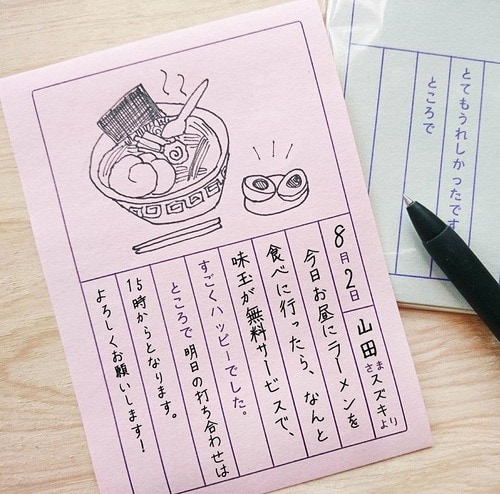 8月2日
山田さま
スズキより
今日お昼にラーメンを
食べに行ったら、なんと
味玉が無料サービスで、
すごくハッピーでした。
ところで明日の打ち合わせは
15時からとなります。
よろしくお願いします!
とてもうれしかったです
ところで